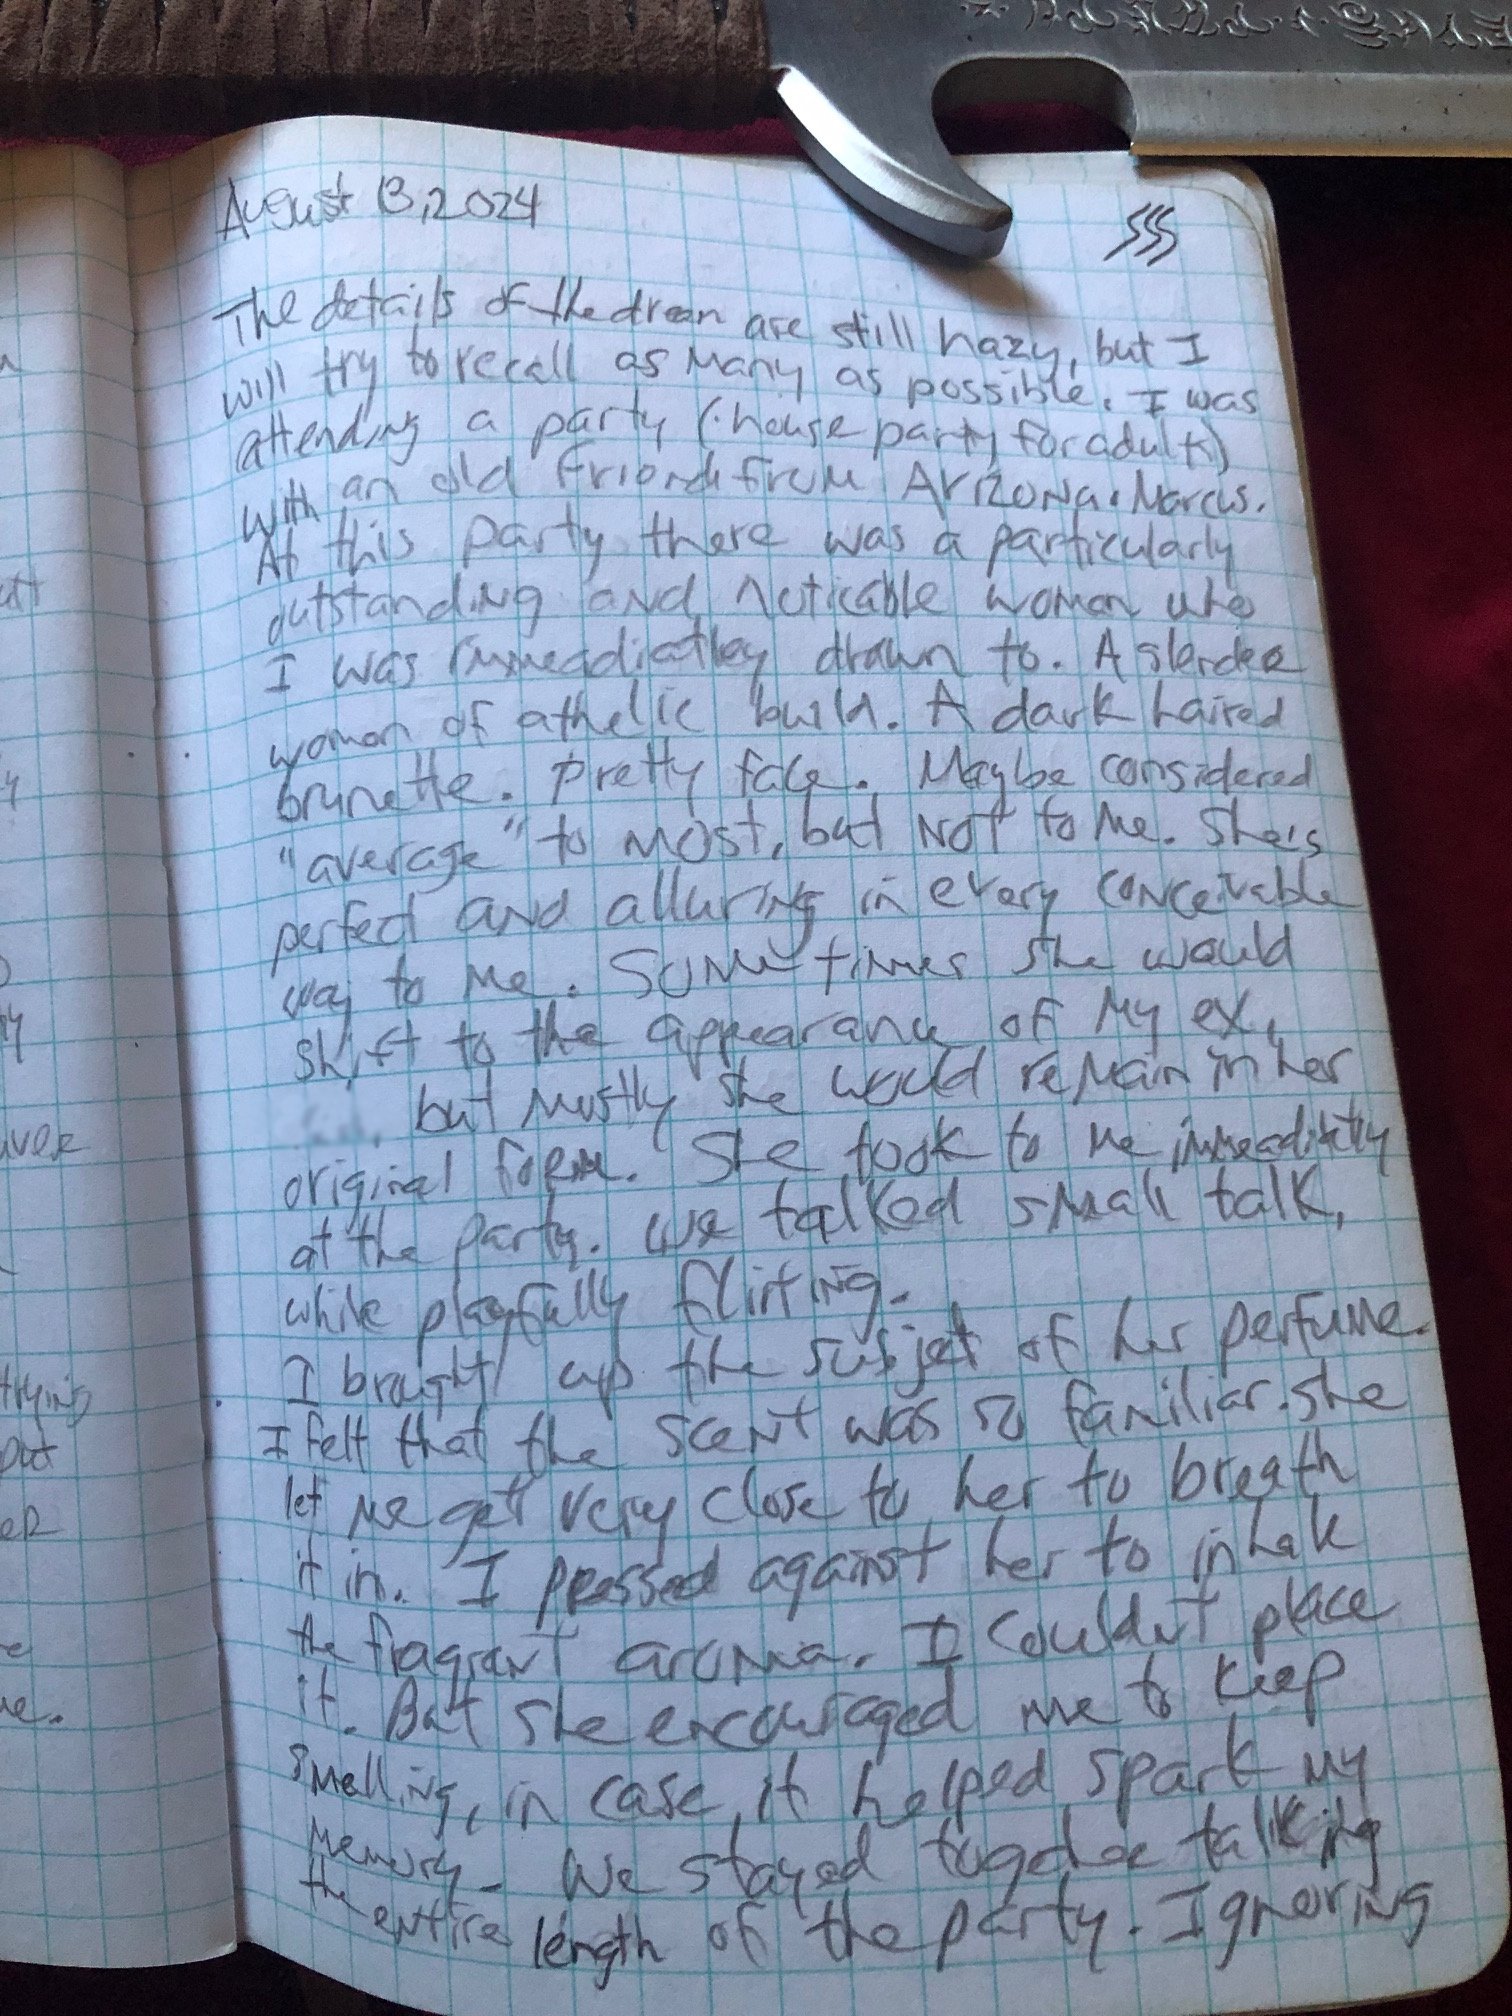 August 13, 2024
The details of the dream are still hazy, but I
will try to recall as many as possible. I was
attending a party (house party for adults)
with an old friend from Arizona. Marcus.
At this party there was a particularly
outstanding and noticable woman who
I was immeadiatley drawn to. A slender
woman of athelic build. A dark haired
brunette. Pretty face. Maybe considered
"average" to most, but not to me. She's
perfect and alluring in every conceivable
way to me. Sometimes she would
shift to the appearance of my ex,
but mostly she would remain in her
original form. She took to me immeadiatley
at the party. We talked small talk,
while playfully flirting.
I brought up the subject of her perfume.
I felt that the scent was so familiar. She
let me get very close to her to breath
it in. I pressed against her to inhale
the fragrant aroma. I couldn't place
it. But she encouraged me to keep
smelling, in case it helped spark my
memory. We stayed together talking
the entire length of the party. Ignoring
trying